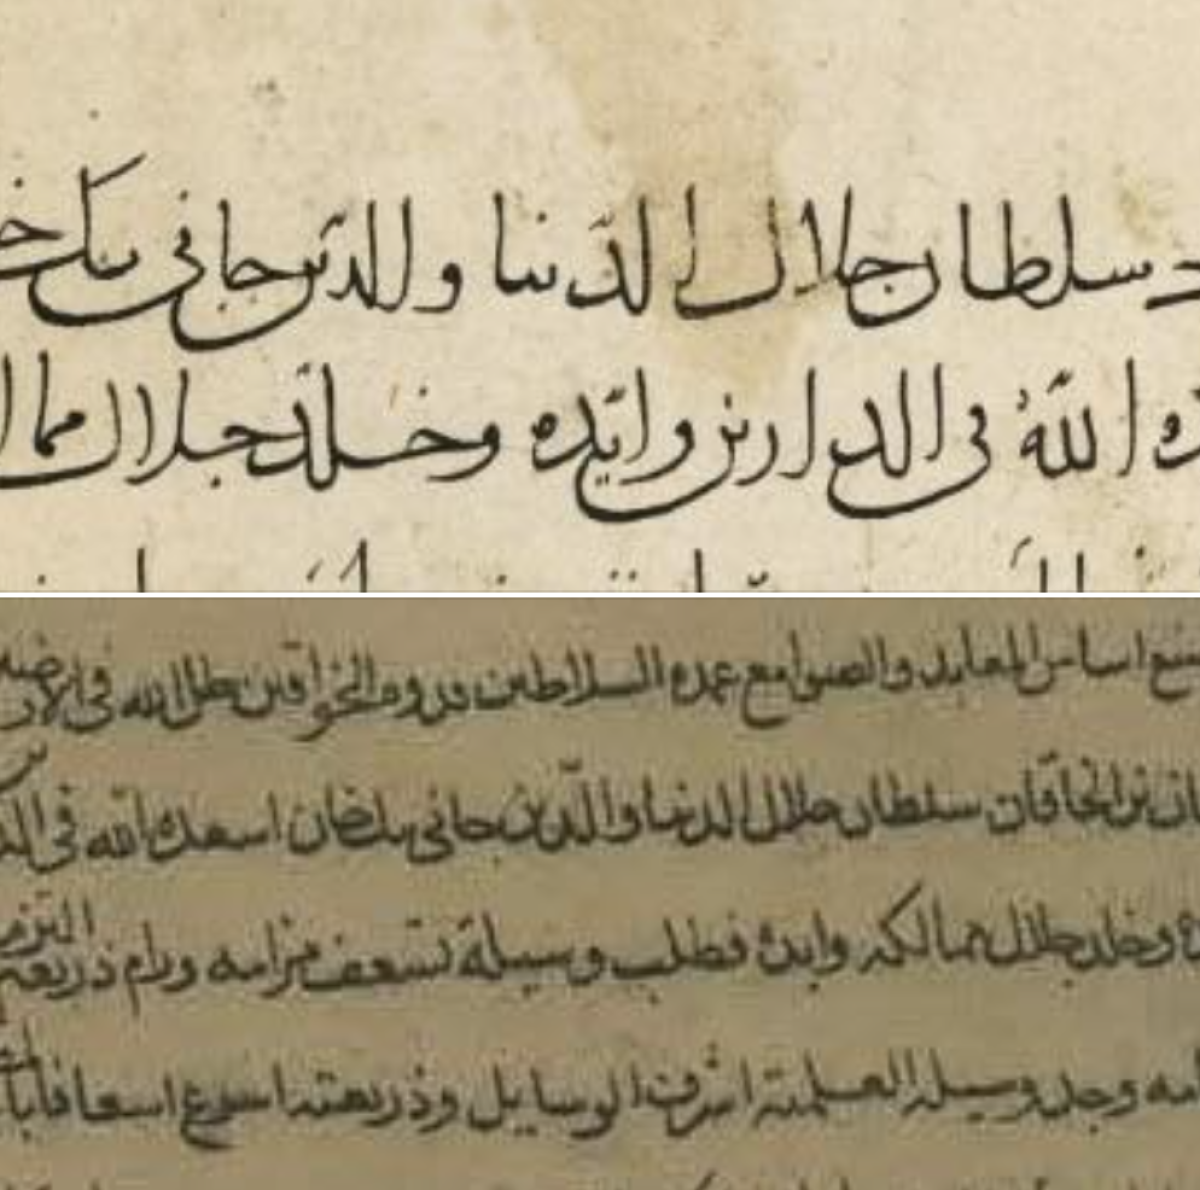 سلطان جلال الدنيا والدين جانى بك خا
الله فى الدارين وايده وخلد جلال مما
اساس المعابد والصوامع عمدة السلاطين قدوم الخواقين ظل الله فى الارضين
بن الخاقان سلطان جلال الدنيا والدين جانى بك خان اسعده الله فى الد
وخلد جلال ممالكه وابده فطلب وسيلة تسعف مرامه ورام ذريعة
وجد وسيلة العلمية اشرف الوسايل وذريعته اسرع اسعافا